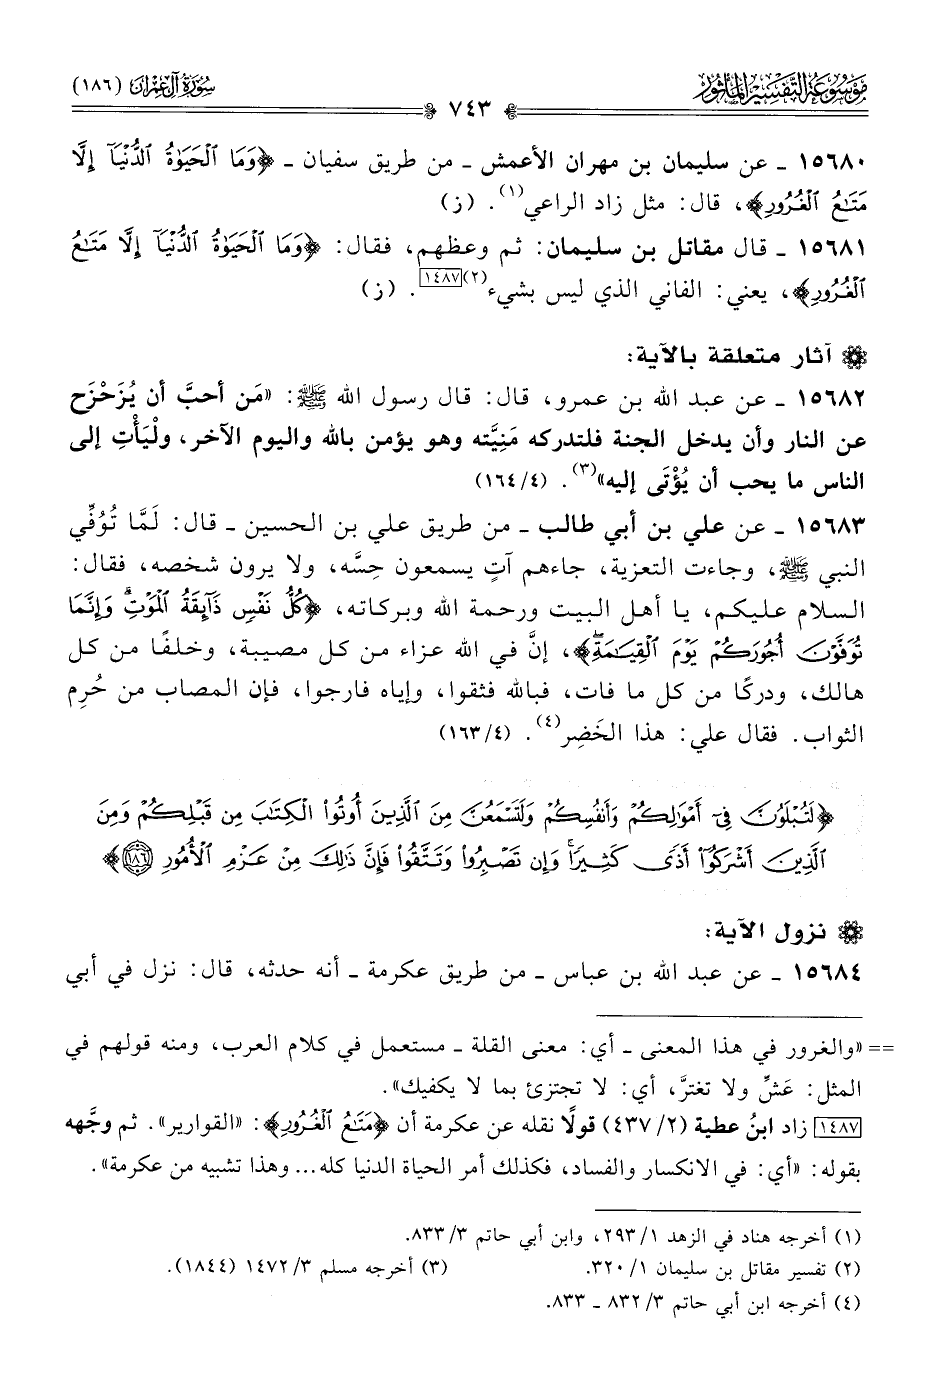 مَوْسُوعَةُ التَّفْسِيرِ المَأْثُورِ
سُورَةُ آلِ عِمْرَانَ (١٨٦)
٧٤٣
١٥٦٨٠ ـ عن سليمان بن مهران الأعمش ـ من طريق سفيان ـ ﴿وَمَا ٱلْحَيَوٰةُ ٱلدُّنْيَآ إِلَّا
مَتَٰعُ ٱلْغُرُورِ﴾، قال: مثل زاد الراعي(١). (ز)
١٥٦٨١ ـ قال مقاتل بن سليمان: ثم وعظهم، فقال: ﴿وَمَا ٱلْحَيَوٰةُ ٱلدُّنْيَآ إِلَّا مَتَٰعُ
ٱلْغُرُورِ﴾، يعني: الفاني الذي ليس بشيء(٢)[١٤٨٧]. (ز)
آثار متعلقة بالآية:
١٥٦٨٢ ـ عن عبد الله بن عمرو، قال: قال رسول الله ﷺ: «مَن أحبَّ أن يُزَحْزَح
عن النار وأن يدخل الجنة فلتدركه مَنِيَّته وهو يؤمن بالله واليوم الآخر، ولْيَأْتِ إلى
الناس ما يحب أن يُؤْتَى إليه»(٣). (١٦٤/٤)
١٥٦٨٣ ـ عن علي بن أبي طالب ـ من طريق علي بن الحسين ـ قال: لَمَّا تُوُفِّي
النبي ﷺ، وجاءت التعزية، جاءهم آتٍ يسمعون حِسَّه، ولا يرون شخصه، فقال:
السلام عليكم، يا أهل البيت ورحمة الله وبركاته، ﴿كُلُّ نَفْسٍ ذَآئِقَةُ ٱلْمَوْتِ ۗ وَإِنَّمَا
تُوَفَّوْنَ أُجُورَكُمْ يَوْمَ ٱلْقِيَٰمَةِ ۖ﴾، إنَّ في الله عزاء من كل مصيبة، وخلفًا من كل
هالك، ودركًا من كل ما فات، فبالله فثقوا، وإياه فارجوا، فإن المصاب من حُرِم
الثواب. فقال علي: هذا الخَضِر(٤). (١٦٣/٤)
﴿لَتُبْلَوُنَّ فِىٓ أَمْوَٰلِكُمْ وَأَنفُسِكُمْ وَلَتَسْمَعُنَّ مِنَ ٱلَّذِينَ أُوتُوا۟ ٱلْكِتَٰبَ مِن قَبْلِكُمْ وَمِنَ
ٱلَّذِينَ أَشْرَكُوٓا۟ أَذًى كَثِيرًا ۚ وَإِن تَصْبِرُوا۟ وَتَتَّقُوا۟ فَإِنَّ ذَٰلِكَ مِنْ عَزْمِ ٱلْأُمُورِ ١٨٦﴾
نزول الآية:
١٥٦٨٤ ـ عن عبد الله بن عباس ـ من طريق عكرمة ـ أنه حدثه، قال: نزل في أبي
== «والغرور في هذا المعنى ـ أي: معنى القلة ـ مستعمل في كلام العرب، ومنه قولهم في
المثل: عَشِّ ولا تغترَّ، أي: لا تجتزئ بما لا يكفيك».
[١٤٨٧] زاد ابنُ عطية (٤٣٧/٢) قولًا نقله عن عكرمة أن ﴿مَتَٰعُ ٱلْغُرُورِ﴾: «القوارير». ثم وجَّهه
بقوله: «أي: في الانكسار والفساد، فكذلك أمر الحياة الدنيا كله... وهذا تشبيه من عكرمة».
(١) أخرجه هناد في الزهد ٢٩٣/١، وابن أبي حاتم ٨٣٣/٣.
(٢) تفسير مقاتل بن سليمان ٣٢٠/١. (٣) أخرجه مسلم ١٤٧٢/٣ (١٨٤٤).
(٤) أخرجه ابن أبي حاتم ٨٣٢/٣ ـ ٨٣٣.